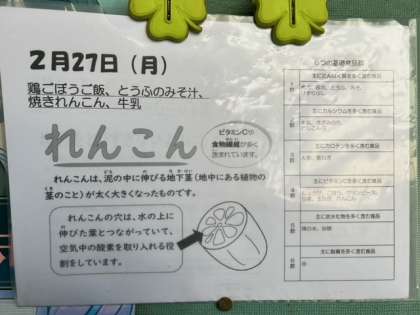 2月27日（月）
鶏ごぼうご飯、とうふのみそ汁、
焼きれんこん、牛乳
れんこん
ビタミンCや
食物繊維が多く
含まれています。
れんこんは、泥の中に伸びる地下茎（地中にある植物の
茎のこと）が太く大きくなったものです。
れんこんの穴は、水の上に
伸びた葉とつながっていて、
空気中の酸素を取り入れる役
割をしています。
6つの基礎食品群
主にたんぱく質を多く含む食品
主にカルシウムを多く含む食品
主にカロテンを多く含む食品
主にビタミンCを多く含む食品
主に炭水化物を多く含む食品
主に脂肪を多く含む食品